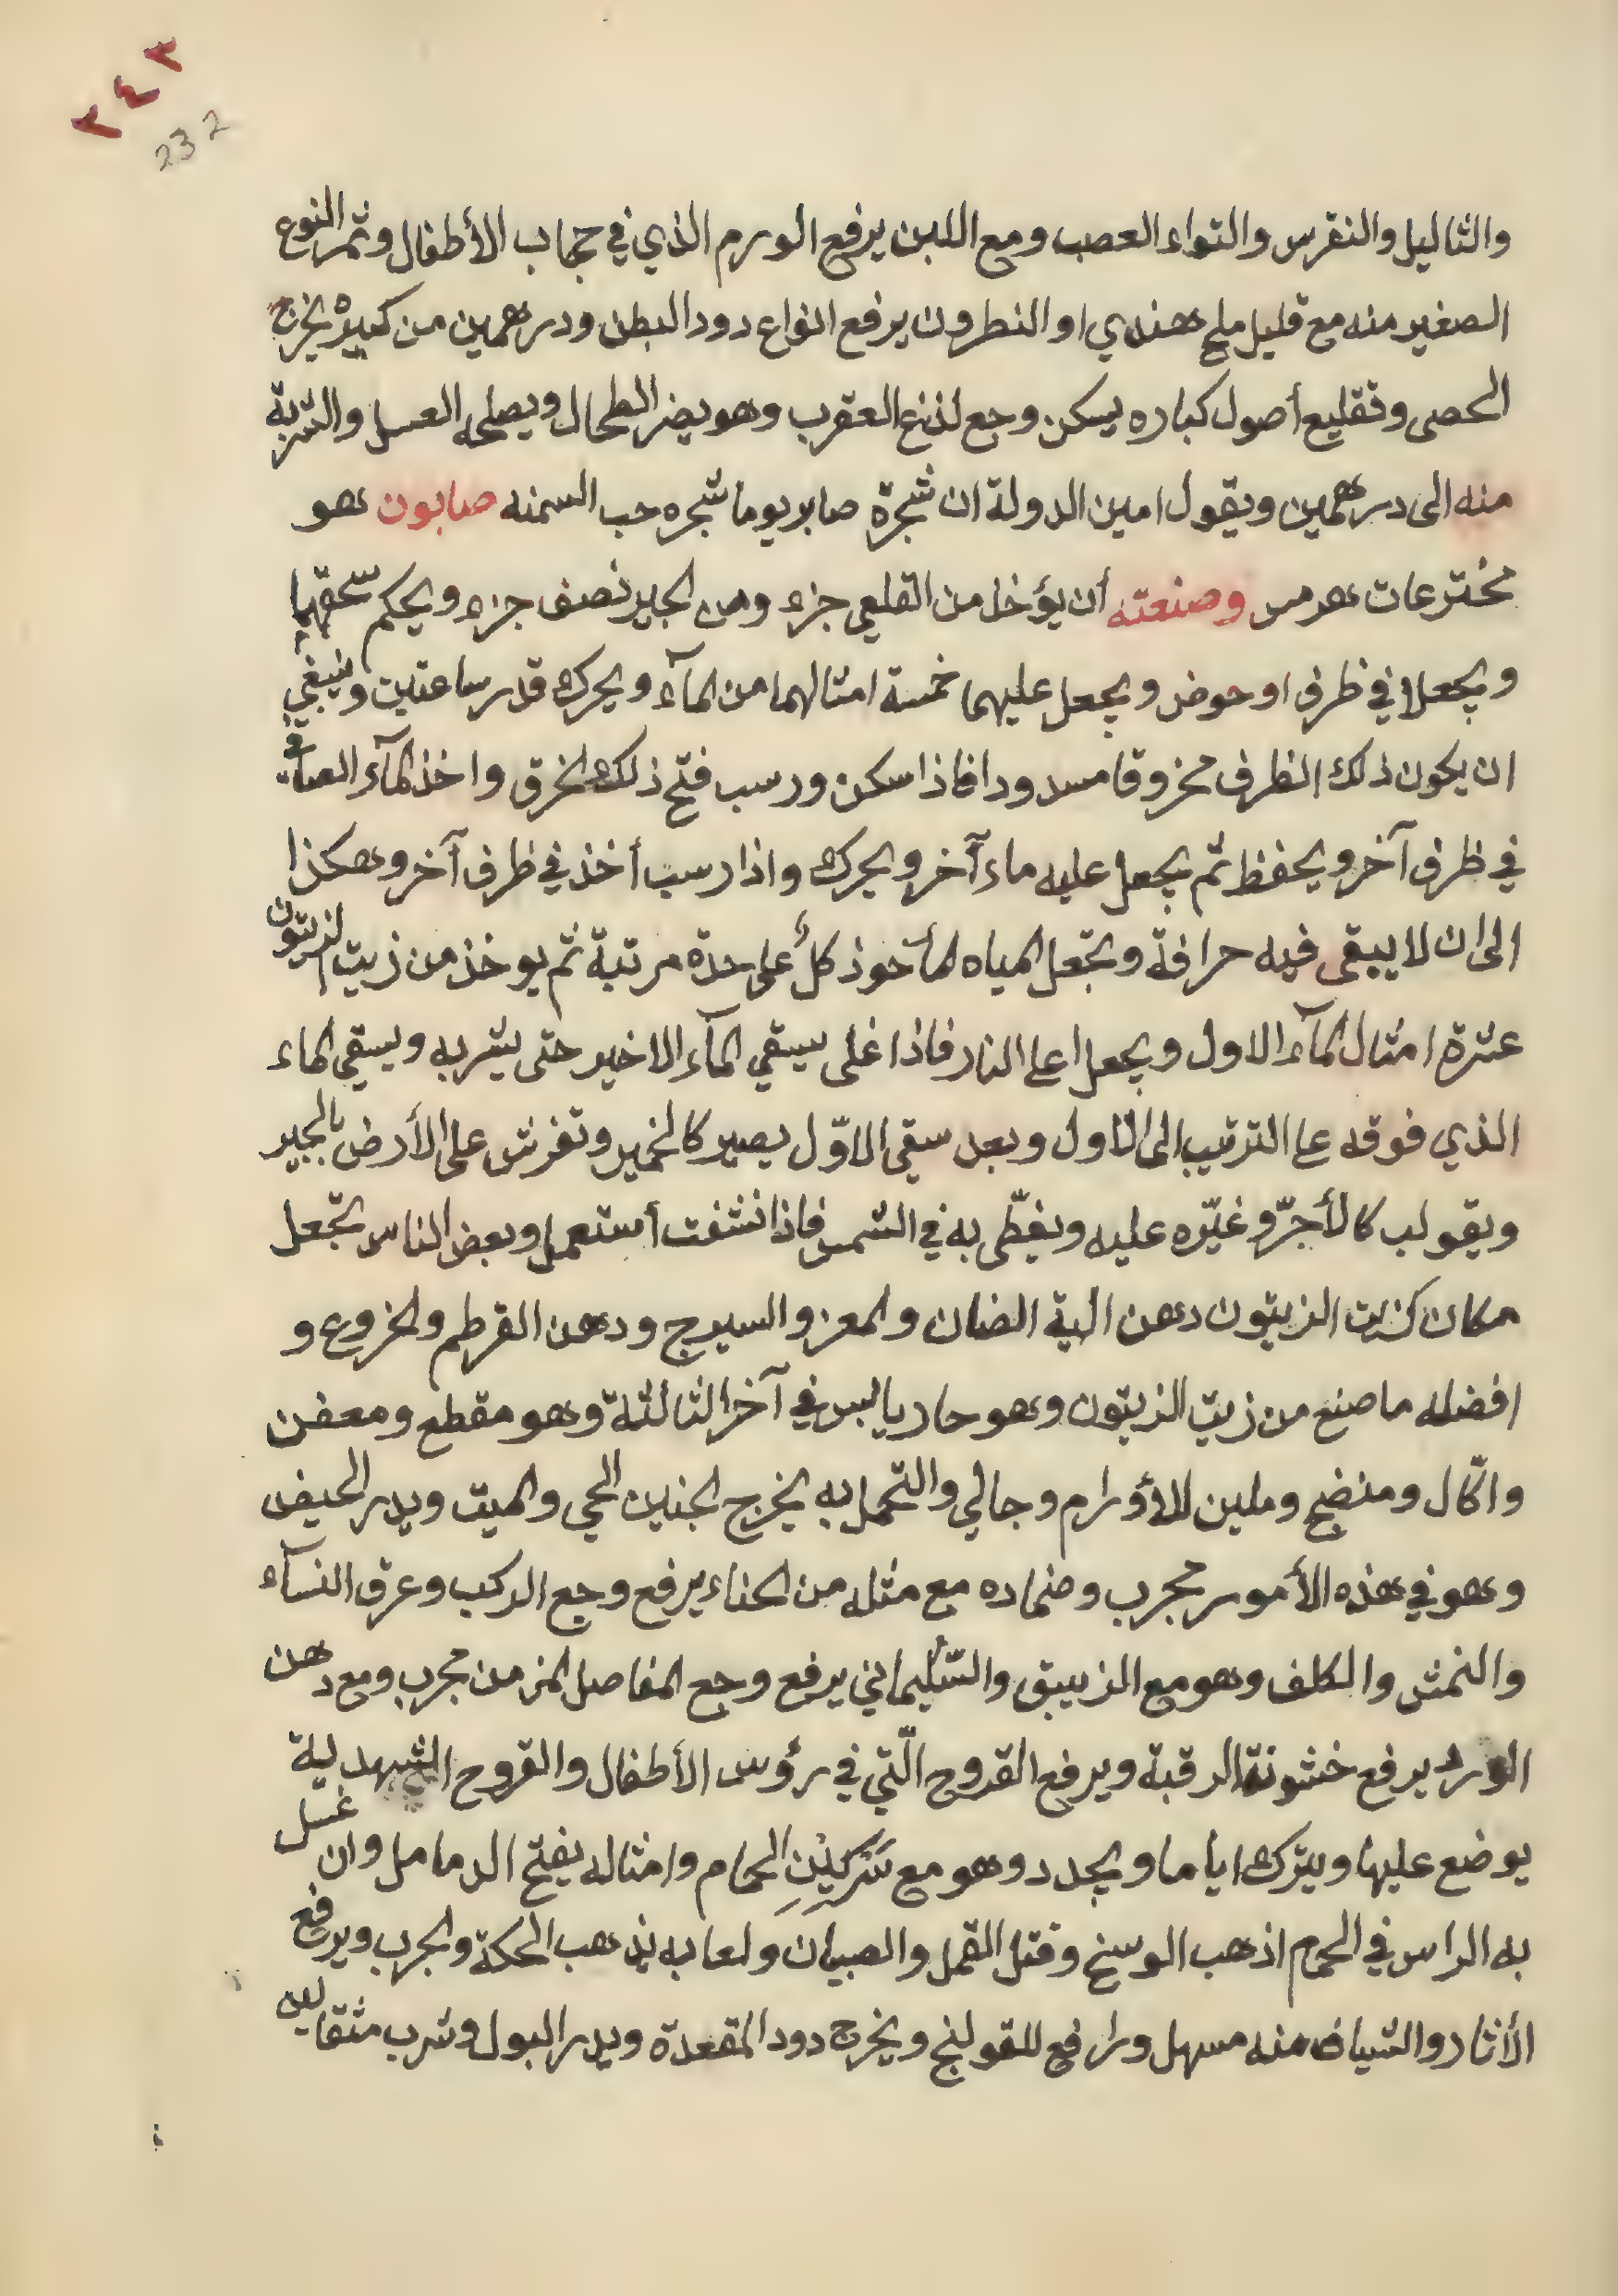 ٢٤٣
232
والثاليل والنقرس والتواء العصب ومع اللبن يرفع الورم الذي في حجاب الأطفال وثمر النوع
الصغير منه مع قليل ملح هندي او النطرون يرفع انواع دود البطن ودرهمين من كبيره يخرج
الحصى وتقليع أصول كباره يسكن وجع لذغ العقرب وهو يضر الطحال ويصلحه العسل والشربة
منه الى درهمين ويقول امين الدولة ان شجرة صابريوما شجره حب السمنه صابون هو
مخترعات هرمس وصنعته أن يؤخذ من القلعي جزء ومن الجير نصف جزء ويحكم سحقهما
ويجعلا في ظرف او حوض ويجعل عليهما خمسة امثالهما من المآء ويحرك قدر ساعتين وينبغي
ان يكون ذلك الظرف مخروقا مسدودا فاذا سكن ورسب فتح ذلك الخرق واخذ المآء الصافي
في ظرف آخر ويحفظ ثم يجعل عليه ماء آخر ويحرك واذا رسب أخذ في ظرف آخر وهكذا
الى ان لا يبقى فيه حرافة وتجعل المياه المأخوذ كلٌ على حدة مرتبة ثم يوخذ من زيت الزيتون
عشرة امثال المآء الاول ويجعل اعلى النار فاذا غلى سيقي المآء الاخير حتى يشربه ويسقي الماء
الذي فوقه على الترتيب الى الاول وبعد سقي الاوّل يصير كالخمير وتفرش على الأرض بالجير
ويقولب كالأجرّ وغيّره عليه ويغطّى به في الشمس فاذا نشفت أستعمل وبعض الناس يجّعل
مكان كزيت الزيتون دهن الية الضان والمعز والسيرج ودهن القرطم والخروع و
افضله ما صنع من زيت الزيتون وهو حار يابس في آخر الثالثة وهو مقطع ومعفن
واكّال ومنضج وملين للأورام وجالي والتحمل به يخرج الجنين الحي والميت ويدر الحيض
وهو في هذه الأمور مجرب وضماده مع مثله من الحناء يرفع وجع الركب وعرق النسآء
والنمش والكلف وهو مع الزيبق والسّليماني يرفع وجع المفاصل المزمن مجرب ومع دهن
الورد يرفع خشونة الرقبة ويرفع القروح الّتي في رؤس الأطفال والقروح الشهدية
يوضع عليها ويترك اياما ويجدد وهو مع سَركينِ الحمام وامثاله يفتح الدمامل وان غسل
به الراس في الحمام اذهب الوسخ وقتل القمل والصيبان ولعابه يذهب الحكة والجرب ويرفع
الأثار والشياف منه مسهل ورافع للقولنج ويخرج دود المقعدة ويدر البول وشرب مثقالين